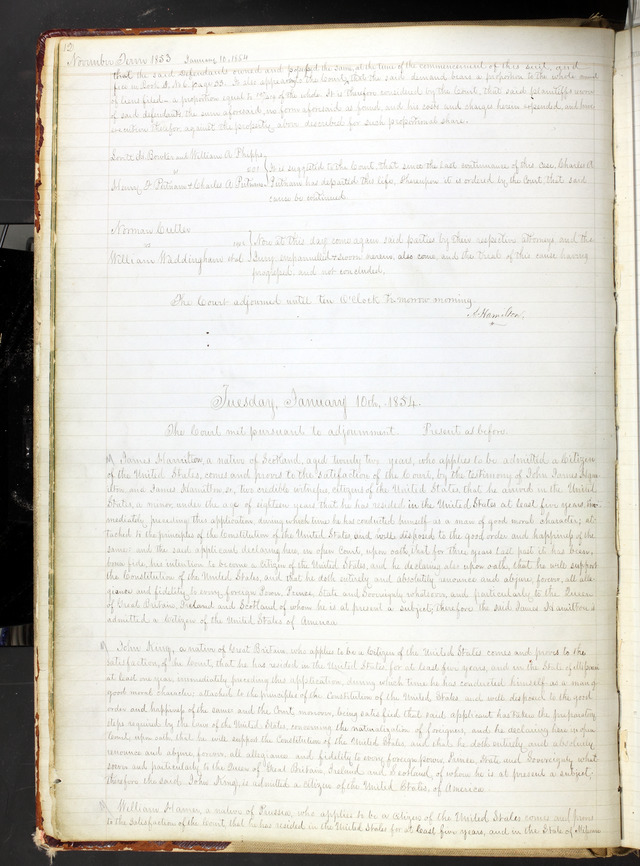 12
November Term 1853 January 10, 1854
that the said defendant owned and possessed the same, at the time of the commencement of this suit, and
files in Book A. No 6 page 33. It also appears to the Court, that the said demand bears a proportion to the whole amount
of liens filed a proportion equal to of the whole. It is therefore considered by the Court, that said plaintiffs recover
of said defendants the sum aforesaid, in form aforesaid so found, and his costs and charges herein expended, and have
execution therefor against the property above described for such proportional share.
Bowles and William A Phipps,
vs
Henry Putnam & Charles A Putnam
It is suggested to the Court, that since the last continuance of this case, Charles A
Putnam has departed this life, thereupon it is ordered by the Court that said
cause be continued.
Norman Cutter
vs
William Waddingham et al.
Now at this day come again said parties by their respective attorneys, and the
Jury empannelled & sworn herein, also come, and the trial of this cause having
progressed, and not concluded,
The Court adjourned until ten O'Clock To-morrow morning.
A Hamilton,
Tuesday, January 10th, 1854.
The Court met pursuant to adjournment Present as before
James Hamilton, a native of Scotland, aged twenty two years, who applies to be admitted a Citizen
of the United States, comes and proves to the satisfaction of the Court, by the testimony of John James
and James Hamilton, sr., two credible witnesses, citizens of the United States that he arrived in the United
States, a minor, under the age of eighteen years that he has resided in the United States at least five years, im-
mediately preceding this application, during which time he has conducted himself as a man of good moral character; at-
tached to the principles of the Constitution of the United States, and well disposed to the good order and happiness of the
same: and the said applicant declaring here, in open Court, upon oath, that for three years last past it has been,
bona fide, his intention to become a Citizen of the United States, and he declaring also upon oath, that he will support
the Constitution of the United States, and that he doth entirely and absolutely renounce and abjure, forever, all alle-
giance and fidelity to every foreign Power, Prince, State and Sovereignty whatsoever, and particularly to the Queen
of Great Britain, Ireland and Scotland of whom he is at present a subject; therefore the said James Hamilton, is
admitted a Citizen of the United States, of America.
John King, a native of Great Britain, who applies to be a Citizen of the United States, comes and proves to the
satisfaction, of the Court, that he has resided in the United States, for at least five years, and in the State of Missouri
at least one year, immediately preceding this application, during which time he has conducted himself as a man of
good moral character, attached to the principles of the Constitution of the United States, and well disposed to the good
order and happiness of the same: and the Court, moreover, being satisfied that said applicant has taken the preparatory
steps required by the laws of the United States, concerning the naturalization of foreigners, and he declaring here in open
Court, upon oath that he will support the Constitution of the United States, and that he doth entirely and absolutely
renounce and abjure, forever, all allegiance and fidelity to every foreign power, Prince, State, and Sovereignty what-
soever and particularly to the Queen of Great Britain Ireland and Scotland, of whom he is at present a subject;
therefore the said John King, is admitted a citizen of the United States, of America.
William Hamer, a native of Prussia, who applies to be a citizen of the United States comes and proves
to the satisfaction of the Court, that he has resided in the United States for at least five years, and in the State of Missouri